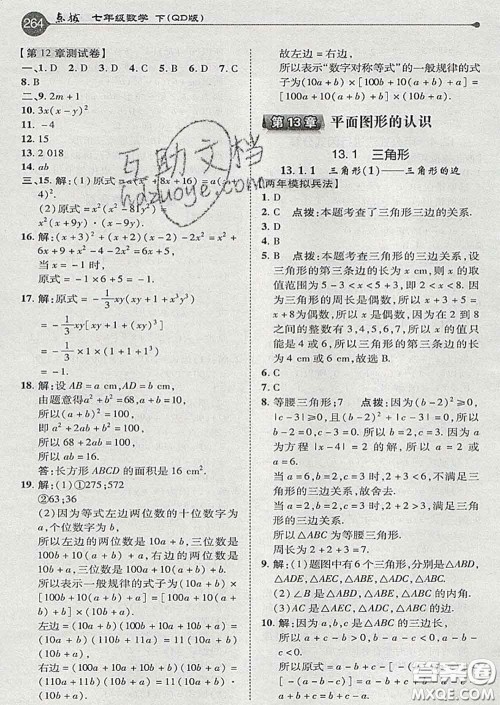 264 点拨 七年级数学 下(QD版)
【第12章测试卷】
一、1. D 2. D 3. D 4. C 5. D 6. D 7. C
8. B
二、9. 2m+1
10. 3x(x-y)²
11. -4
12. -15
13. 2 018
14. ab
三、15. 解:(1)原式=a(
+8x+16)=a(
(2)原式=x²(x²-8x-9)=x²(x-9)
(x+1).
16. 解:x²+(2+x)(2-x)-2x²=x²+4-
x²-2x²=4-2x².
当x=-1时,
原式=-1×6+5=-1.
17. 解:原式=-1/3xy(xy+1)²-1/3xy
=-1/3xy[xy+(1+xy)²]
=-1/3×1×(1+1)²
18. 解:设AB=a cm,AD=b cm,
由题意得a²+b²=68,a+b=10,
所以(a+b)²=100,
即a²+2ab+b²=100,
所以68+2ab=100,
所以ab=16.
答:长方形ABCD的面积是16 cm².
19. 解:(1)①275;572
②63;36
(2)因为等式左边两位数的十位数字为
a,个位数字为b,
所以左边的两位数是10a+b,三位数是
100b+10(a+b)+a,
右边的两位数是10b+a,三位数是
100a+10(a+b)+b,
所以表示一般规律的式子为(10a+b)
×[100b+10(a+b)+a]=[100a+
10(a+b)+b]×(10b+a).
左边=(10a+b)×[100b+10(a+b)+a]
=(10a+b)(100b+10a+10b+a)
=(10a+b)(110b+11a)
=11(10a+b)(10b+a),
右边=[100a+10(a+b)+b]×(10b+a)
=(100a+10a+10b+b)(10b+a)
=(110a+11b)(10b+a)
=11(10a+b)(10b+a),
故左边=右边.
所以表示“数字对称等式”的一般规律的式
子为(10a+b)×[100b+10(a+b)+a]=
[100a+10(a+b)+b]×(10b+a).
第13章 平面图形的认识
13.1 三角形
13.1.1 三角形(1)——三角形的边
【两年模拟兵法】
1. D
2. C 点拨:本题考查了三角形三边的关系.
3. D
4. B
5. B 点拨:本题考查三角形三边关系,设
三角形的第三条边的长为x cm,则x的取
值范围为5-3<x<3+5,即2<x<8,
因为三角形的周长是偶数,所以x+3+5=
x+8是偶数,所以x是偶数,因为在2到8
之间的整数有3,4,5,6,7,所以x的值只
能是4或6,所以三角形的第三边的长
为4 cm或6 cm,故选B.
6. C
7. C
8. 等腰三角形;7 点拨:因为(b-2)²≥0,
|c-3|≥0,且(b-2)²+|c-3|=0,所以
(b-2)²=0,|c-3|=0,b=2,c=3.因为a
为方程|x-4|=2的解,所以a=6或
a=2.
当a=6,b=2,c=3时,2+3<6,不满足三
角形三边关系,因此舍去.
当a=2,b=2,c=3时,2+2>3,满足三角
形三边关系.
因为a=b,所以△ABC为等腰三角形,
周长为7.
9. 解:(1)题图中有6个三角形,分别是△ABD,
△ADE,△AEC,△ABE,△ADC,△ABC.
(2)△ABD,△ABE,△ABC.
(3)△AEC,△ADC,△ABC.
10. 解:因为a,b,c是△ABC的三边长,
所以a<b+c,b<a+c,c<a+b,
互助文档
hdzuoye.com
答案圈
MXQE.COM